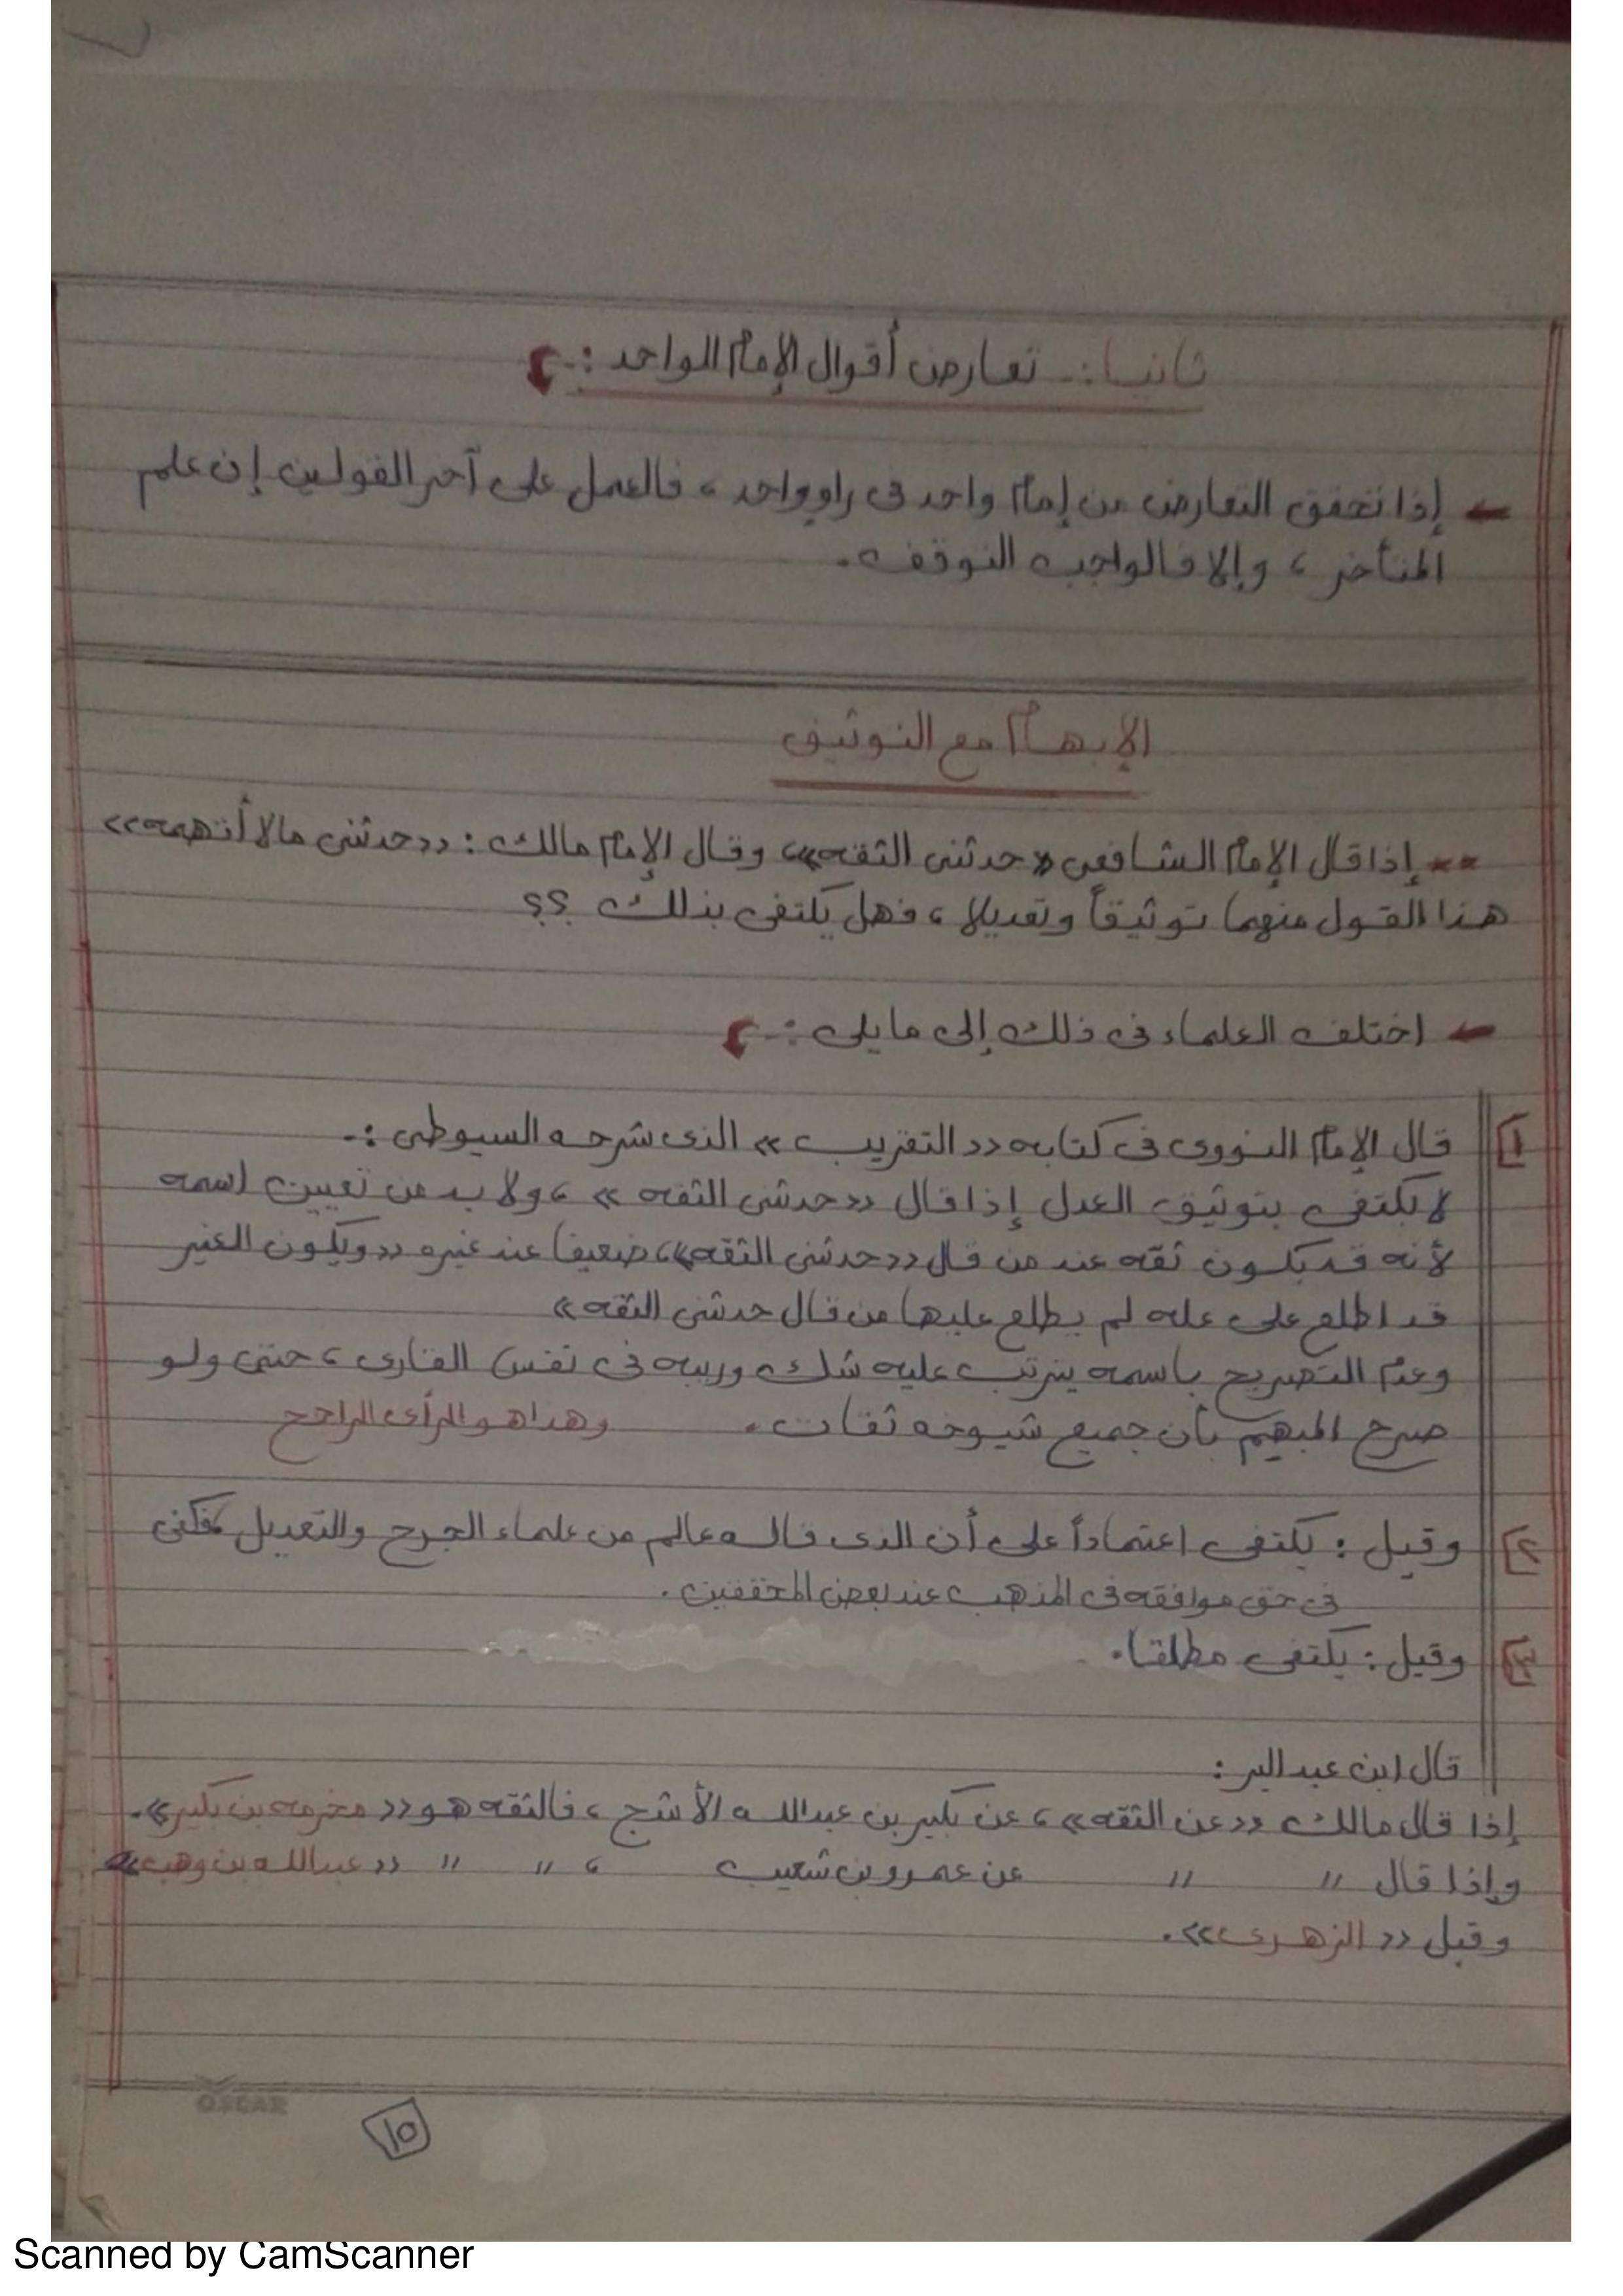 ثانيا :- تعارض أقوال الإمام الواحد :-
إذا تحقق التعارض من إمام واحد فى راو واحد ، فالعمل على آخر القولين إن علم
المتأخر ، وإلا فالواجب التوقف .
الإبهام مع التوثيق
** إذا قال الإمام الشافعى « حدثنى الثقه » وقال الإمام مالك : « حدثنى مالا أتهمه »
هذا القول منهما توثيقاً وتعديلا ، فهل يكتفى بذلك ؟؟
اختلف العلماء فى ذلك إلى ما يلى :-
١ قال الإمام النووى فى كتابه « التقريب » الذى شرحه السيوطى :-
لا يكتفى بتوثيق العدل إذا قال « حدثنى الثقه » ، ولا بد من تعيين اسمه
لأنه قد يكون ثقه عند من قال « حدثنى الثقه » ، ضعيفا عند غيره « ويكون الغير
قد اطلع على عله لم يطلع عليها من قال حدثنى الثقه »
وعدم التصريح باسمه يترتب عليه شك وريبه فى نفس القارى ، حتى ولو
صرح المبهم بأن جميع شيوخه ثقات . وهذا هو الرأى الراجح
٢ وقيل : يكتفى اعتماداً على أن الذى قاله عالم من علماء الجرح والتعديل فكفى
فى حق موافقه فى المذهب عند بعض المحققين .
٣ وقيل : يكتفى مطلقا .
قال ابن عبد البر :
إذا قال مالك « عن الثقه » ، عن بكير بن عبدالله الأشج ، فالثقه هو « مخرمه بن بكير » .
وإذا قال " " عن عمرو بن شعيب ، " " « عبدالله بن وهب »
وقيل « الزهرى » .
OSCAR
١٥
Scanned by CamScanner